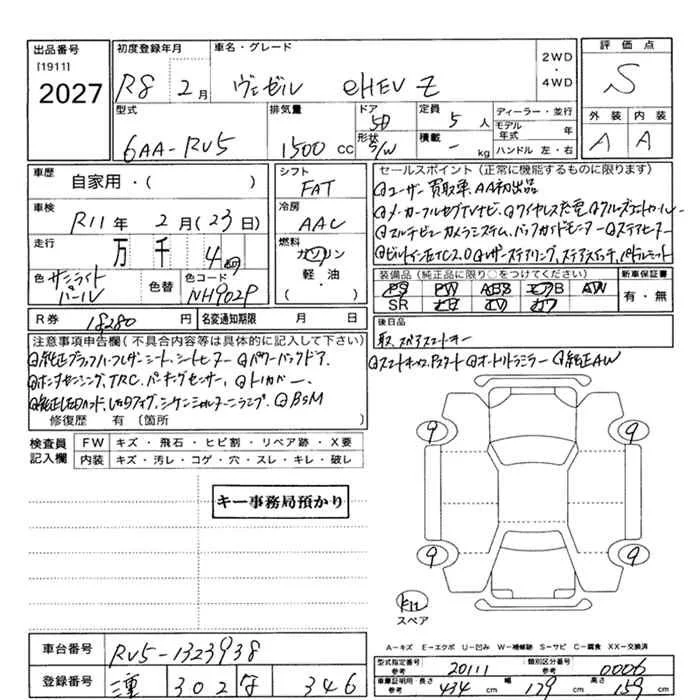 出品番号
[1911]
2027
初度登録年月
R8 2月
車名・グレード
ヴェゼル eHEV Z
2WD
・
4WD
評価点
S
外装 内装
A A
型式
6AA-RV5
排気量
1500 CC
ドア
5D
形状
S/W
定員
5人
積載
- kg
ディーラー・並行
モデル年式 年
ハンドル 左・右
車歴
自家用・( )
車検
R11年 2月(23日)
走行
万 千 4
色 サンライトパール
色替
色コード
NH902P
シフト
FAT
冷房
AAC
燃料
ガソリン
軽・油
・( )
セールスポイント(正常に機能するものに限ります)
ユーザー買取車、AA初出品
メーカーフルセグTVナビ、ワイヤレス充電、クルーズコントロール
マルチビューカメラシステム、バックガイドモニター、ステアヒーター
ビルトインETC2.0、レザーステアリング、ステアスイッチ、パドルシフト
装備品(純正品に限り○をつけてください)
PS PW ABS エアB AW
SR ナビ TV カワ
新車保証書
有・無
R券 18280円
名変通知期限 月 日
後日品
取、スペアスマートキー
注意事項申告欄(不具合内容等は具体的に記入して下さい)
純正ブラックハーフレザーシート、シートヒーター パワーバックドア、
ホンダセンシング、TRC、パーキングセンサー、トノカバー、
純正LEDヘッド、LEDフォグ、シーケンシャルターンランプ、BSM
修復歴 有 (箇所 )
スマートキー×2、Pスタート オートリトラミラー 純正AW
検査員記入欄
FW キズ・飛石・ヒビ割・リペア跡・X要
内装 キズ・汚レ・コゲ・穴・スレ・キレ・破レ
キー事務局預かり
9 9
9 9
キット
スペア
A=キズ E=エクボ U=凹み W=補修跡 S=サビ C=腐食 XX=交換済
車台番号 RV5-1323938
登録番号 三重 302 な 346
型式指定番号
参考
20111
類別区分番号
0006
車庫証明用・長さ
参考
434 幅 179 高さ 159
cm